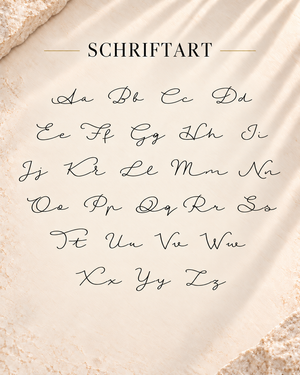 SCHRIFTART
Aa Bb Cc Dd
Ee Ff Gg Hh Ii
Jj Kk Ll Mm Nn
Oo Pp Qq Rr Ss
Tt Uu Vv Ww
Xx Yy Zz